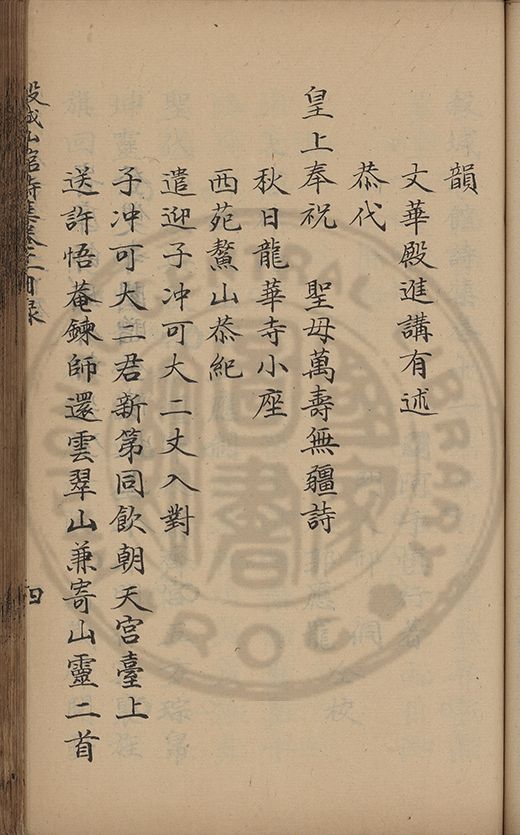 韻
文華殿進講有述
恭代
皇上奉祝 聖母萬壽無疆詩
秋日龍華寺小座
西苑鰲山恭紀
遣迎子冲可大二丈入對
子冲可大二君新第同飲朝天宮臺上
送許悟菴鍊師還雲翠山兼寄山靈二首
穀城山館詩集卷三目錄
四